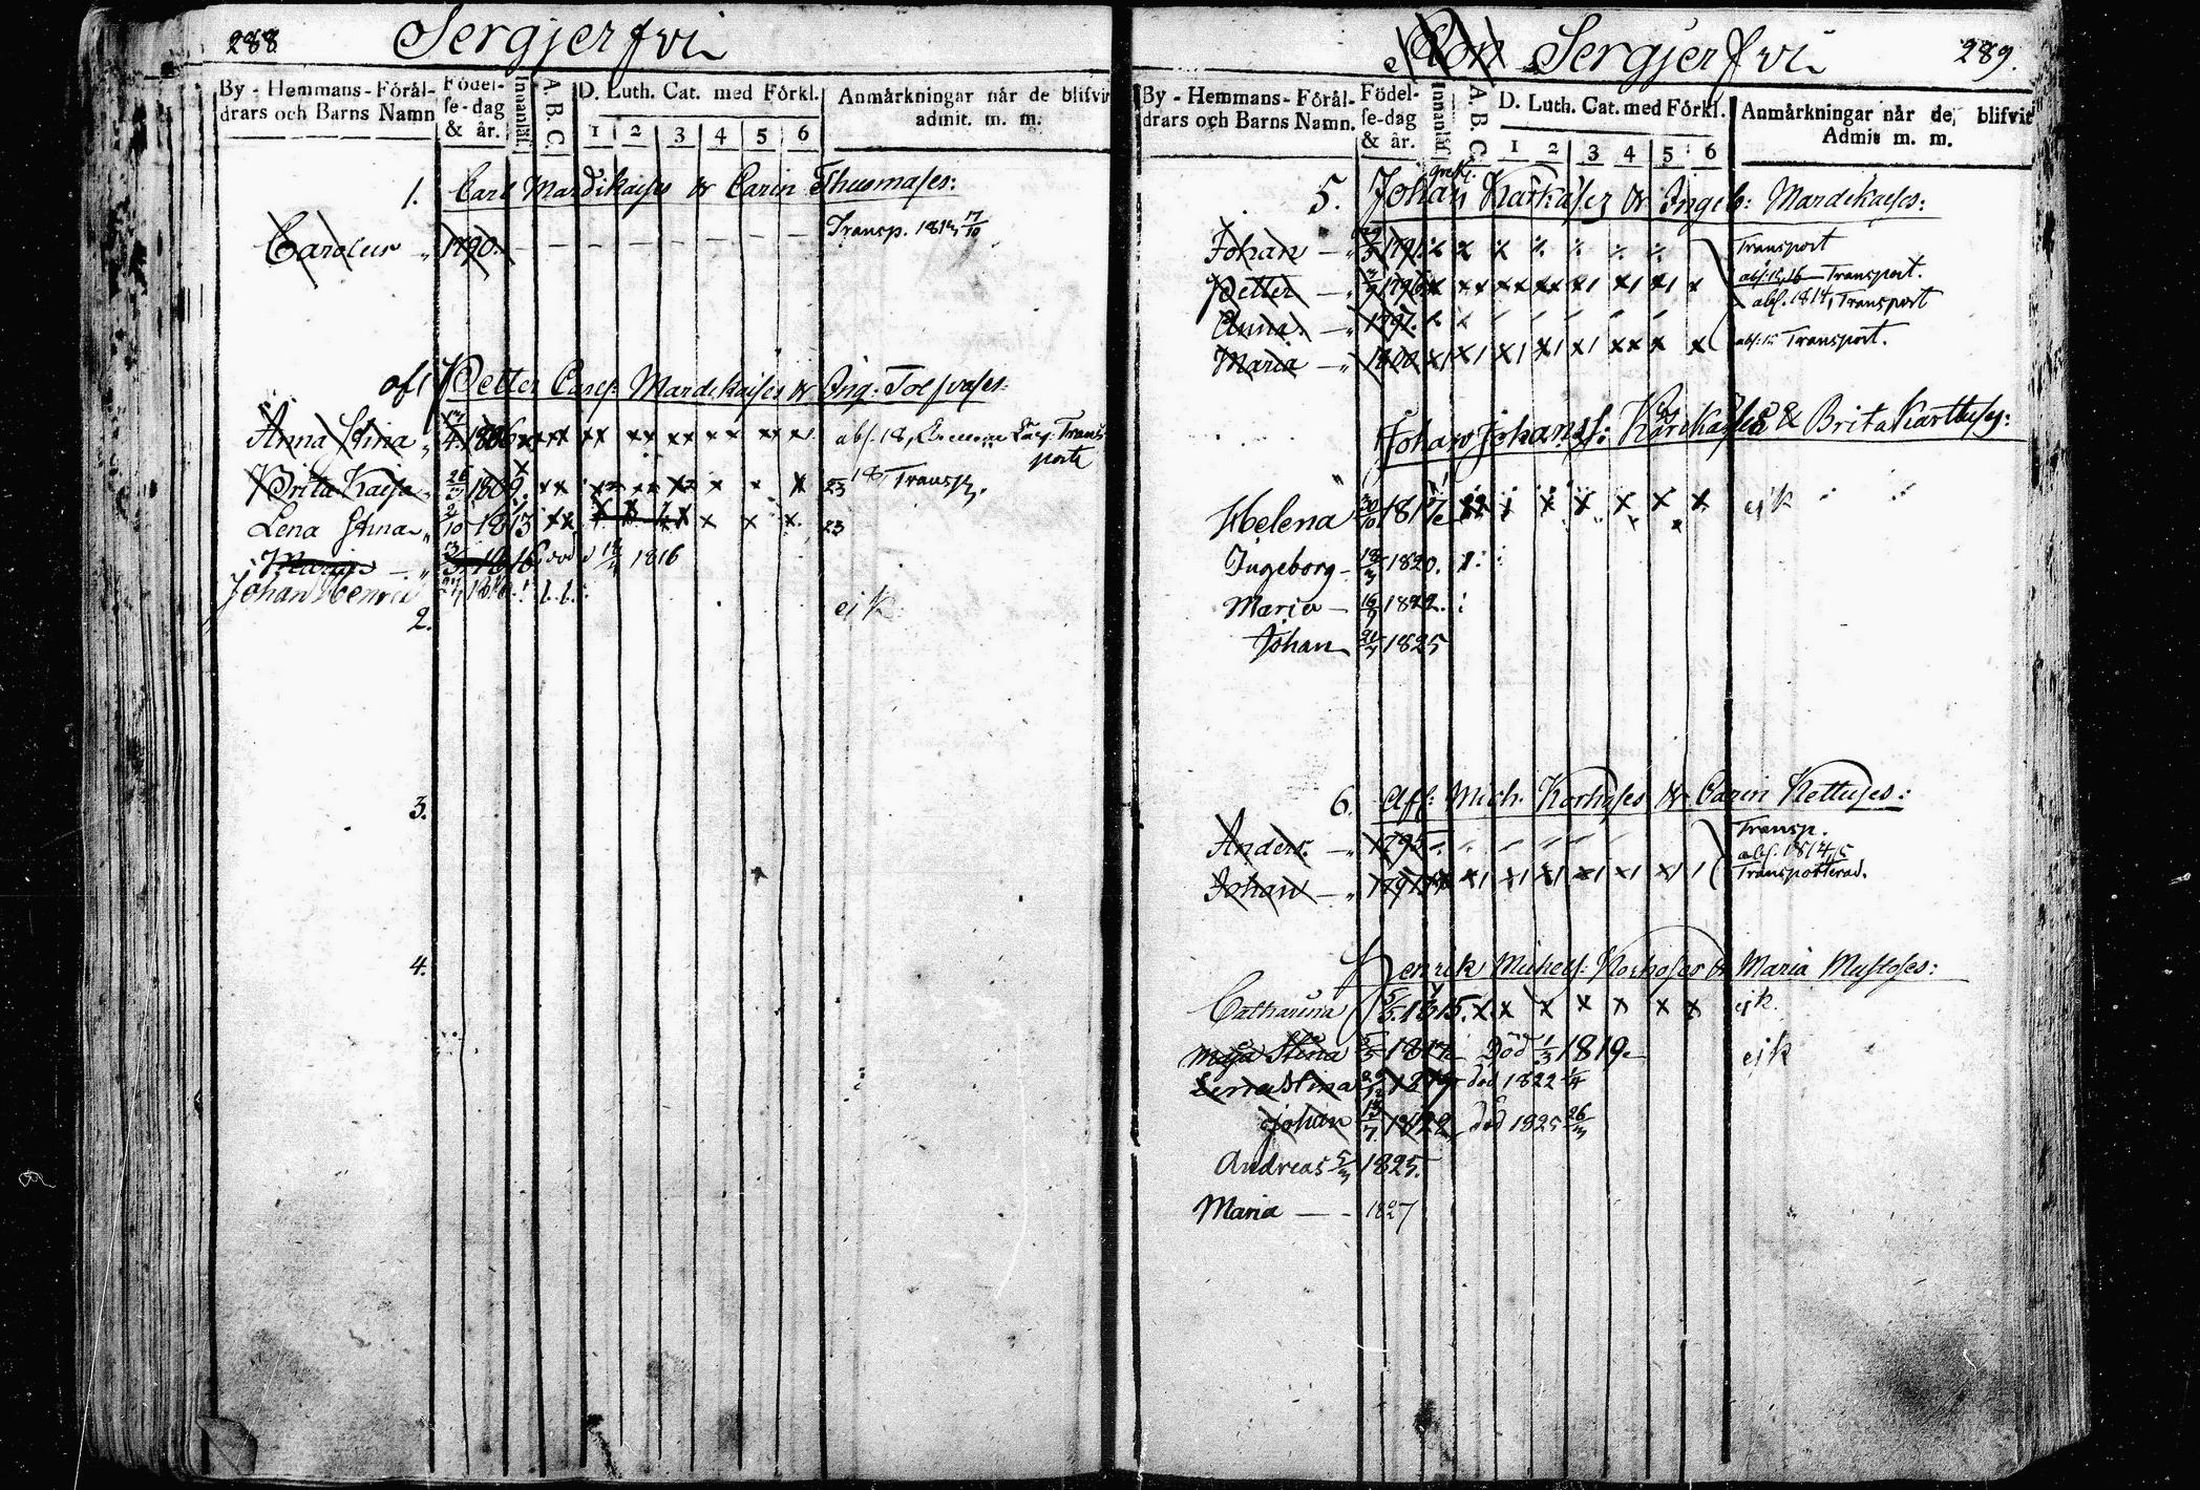 288 Sergjerfvi
By - Hemmans - Förål-
drars och Barns Namn
Födel-
se-dag
& år.
Innanläs.
A. B. C.
D. Luth. Cat. med Förkl.
1 2 3 4 5 6
Anmårkningar når de blifvit
admit. m. m.
1. Carl Mardikaises & Carin Thusmases:
Carolus 1790. Transp. 1814 17/10
Petter Carls: Mardikaises & Ing:
Anna Stina 1806 x xx xx xx xx xx xx x
Brita Kaisa 1809. xx x x x 23 Transp.
Lena Stina 2/10 1813 x x x 23
Maria 1816 död 1816
Johan Henric ejk
2.
3.
4.
Sergjerfvi 289.
By - Hemmans - Förål-
drars och Barns Namn.
Födel-
se-dag
& år.
Innanläs.
A. B. C.
D. Luth. Cat. med Förkl.
1 2 3 4 5 6
Anmårkningar når de blifvit
Admit m. m.
5. Johan Karkases & Ingeb: Mardikaises:
Johan 1791 Transport
Petter 1796 abs. 15, 16 Transport.
Anna 1797. abs. 1814, Transport
Maria 1800 abs. 15 Transport.
Johan Johans: & Brita Karttuses:
Helena 30/10 1817 x x x x x ejk
Ingeborg 1820.
Maria 1822.
Johan 1825
6. Aff: Mich. Korhoses & Carin Kettuses:
Anders 1795 Transp.
abs. 1814, 15
Johan 1797 Transporterad.
Henrik Michels: Korhoses & Maria Mustoses:
Catharina 5/5 1815. x x x x x x x ejk.
Maja Stina 1817 Död 1/3 1819 ejk
Lena Stina 1819 död 1822 1/4
Johan 1822 död 1825 26/3
Andreas 1825.
Maria 1827